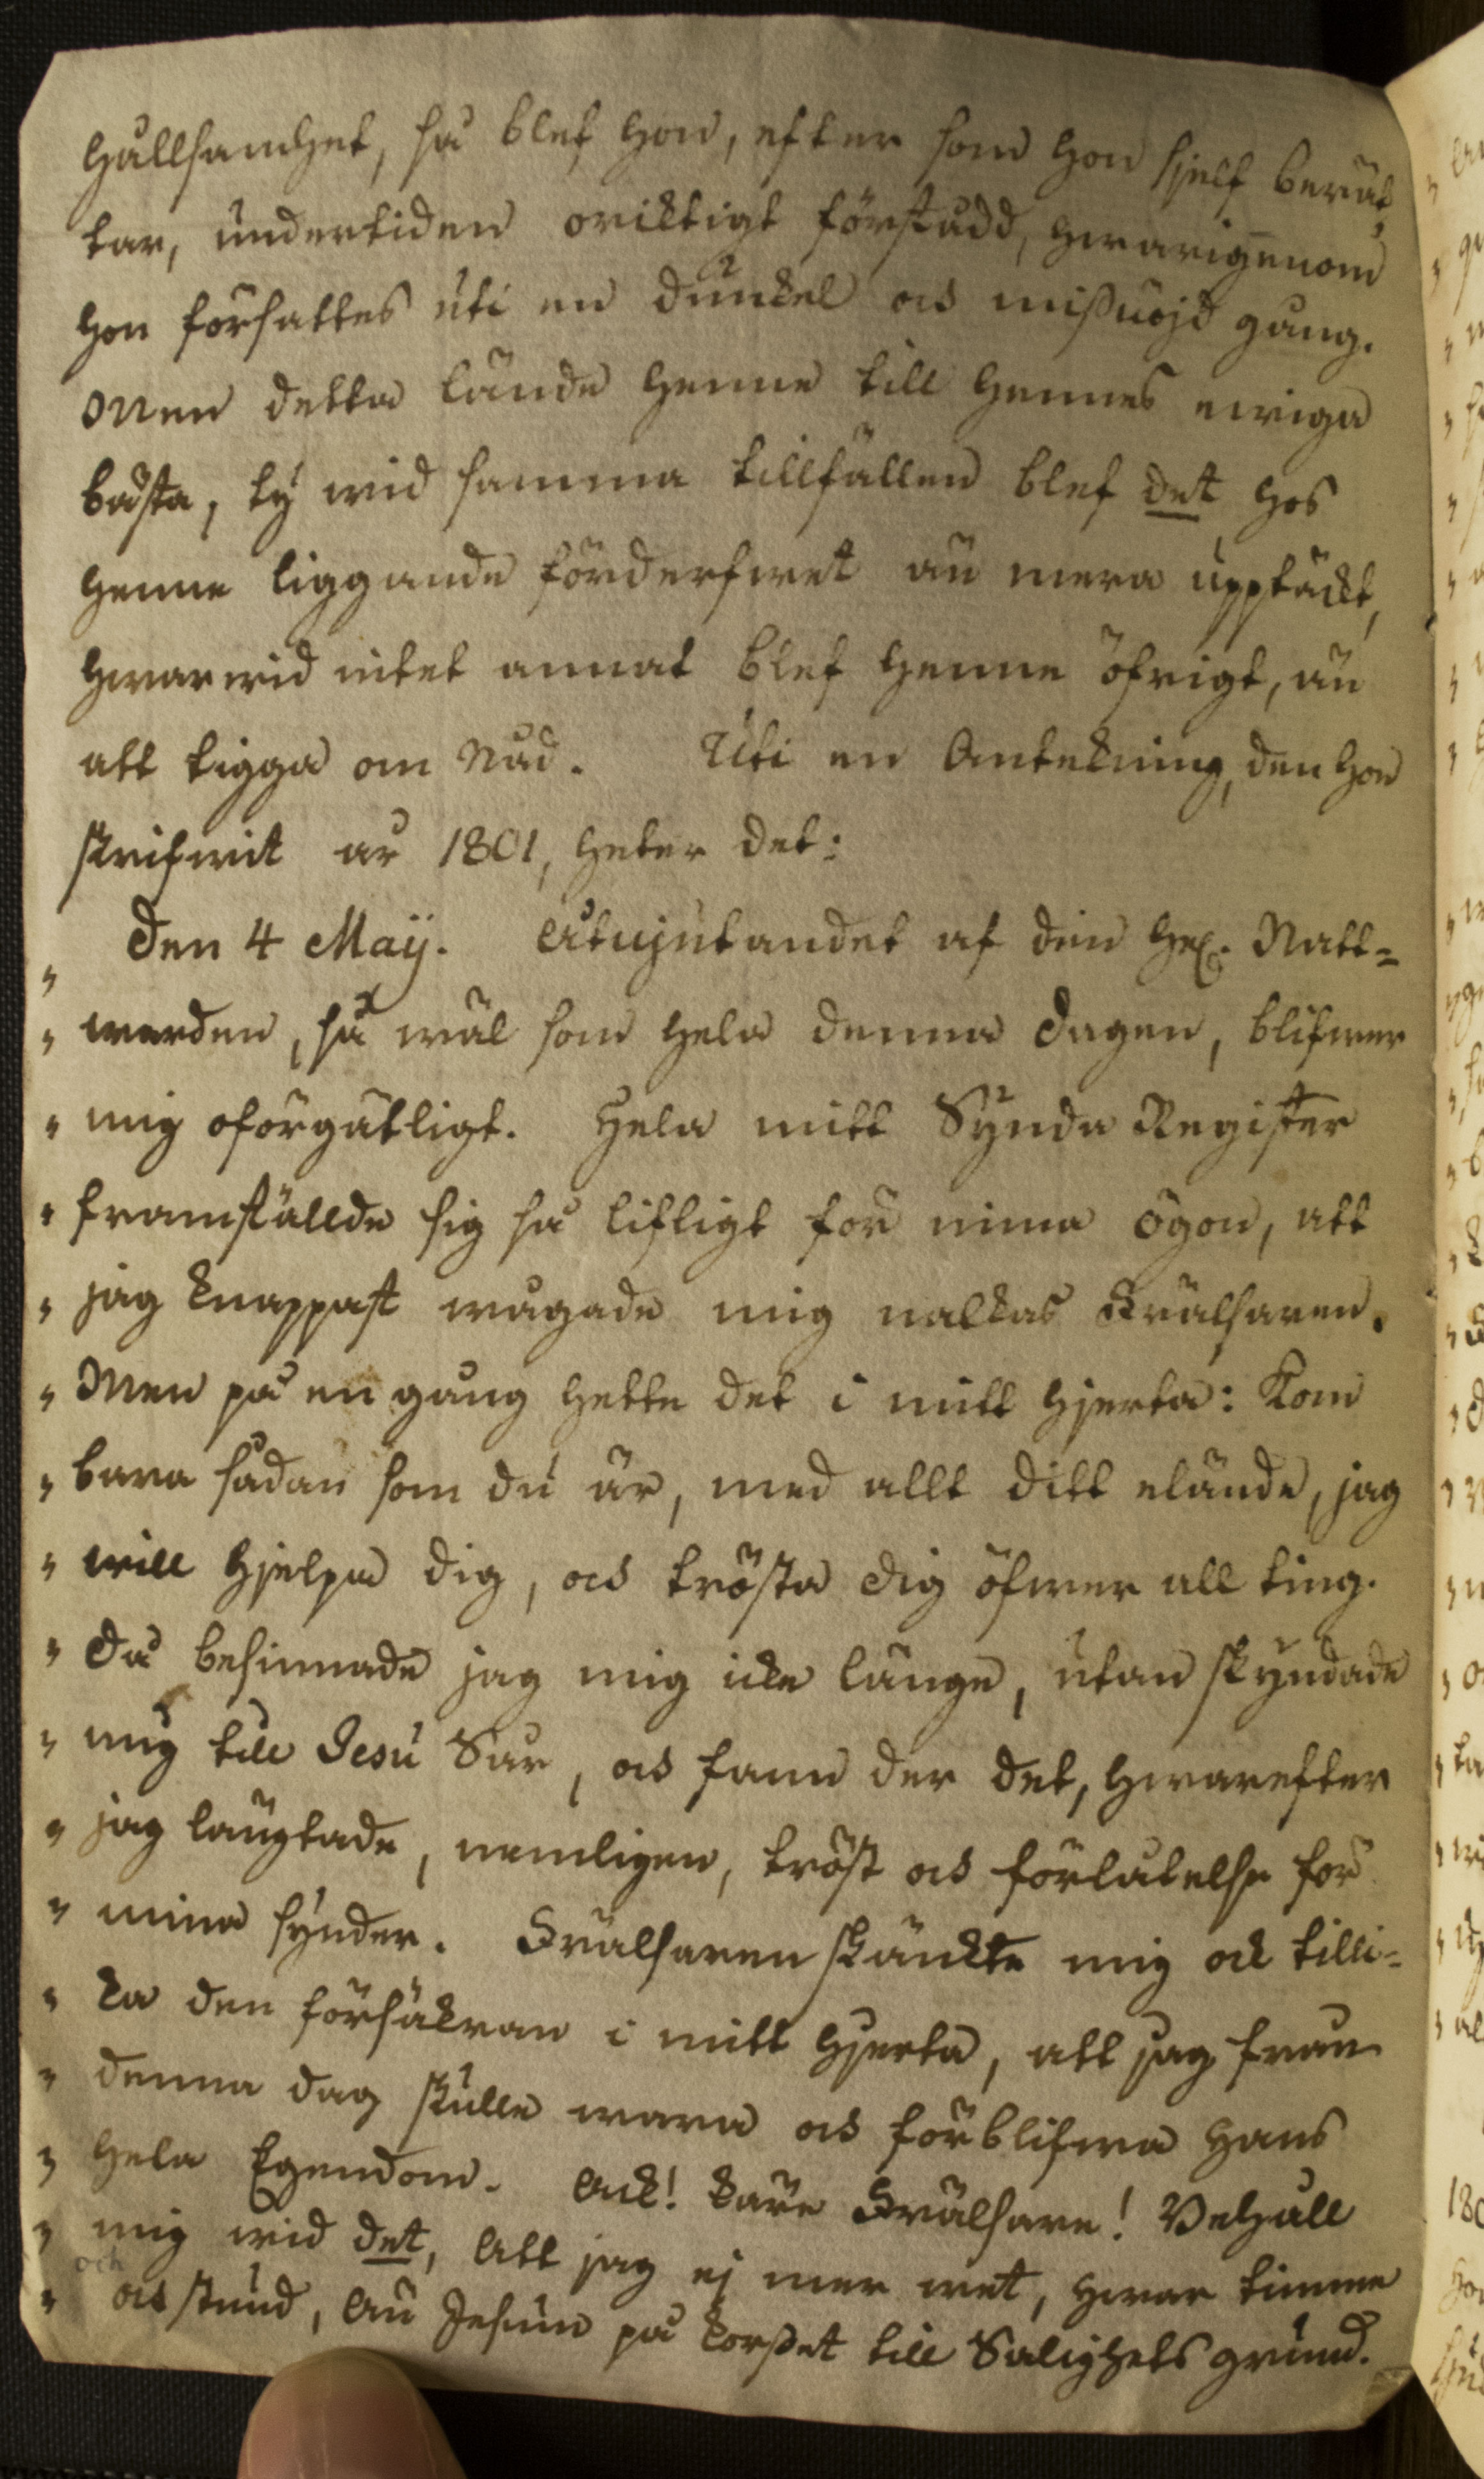 hållsamhet, så blef hon, efter som hon sjelf berät,
tar, undertiden oricktigt förstådd, hwarigenom
hon försattes uti en dunckel och missnöjd gång.
Men detta lände henne till hennes ewiga
bästa, ty wid samma tillfällen blef det hos
henne liggande förderfwet än mera upptäckt,
hwarwid intet annat blef henne öfrigt, än
att tigga om Nåd. Uti en Antekning, den hon
skrifwit år 1801, heter det:
„ Den 4 Maij. Åtnjutandet af den Hel. Natt=
„ warden, så wäl som hela denna dagen, blifwer
„ mig oförgätligt. Hela mitt Synda Register
„ framstälde sig så lifligt för mina ögon, att
„ jag knappast wågade mig nalkas Frälsaren.
„ Men på en gång hette det i mitt hjerta: Kom
„ bara sådan som du är, med allt ditt elände, jag
„ will hjelpa dig, och trösta dig öfwer all ting.
„ Då besinnade jag mig icke länge, utan skyndade
„ mig till Jesu Sår, och fann der det, hwarefter
„ jag längtade, nemligen, tröst och förlåtelse för
„ mina synder. Frälsaren skänckte mig ock tilli=
„ ka den försäkran i mitt hjerta, att jag från
„ denna dag skulle wara och förblifwa hans
„ hela Egendom. Ack! käre Frälsare! Behåll
„ mig wid det, Att jag ej mer wet, hwar timme
och
„ och stund, Än Jesum på korsset till Salighets grund.